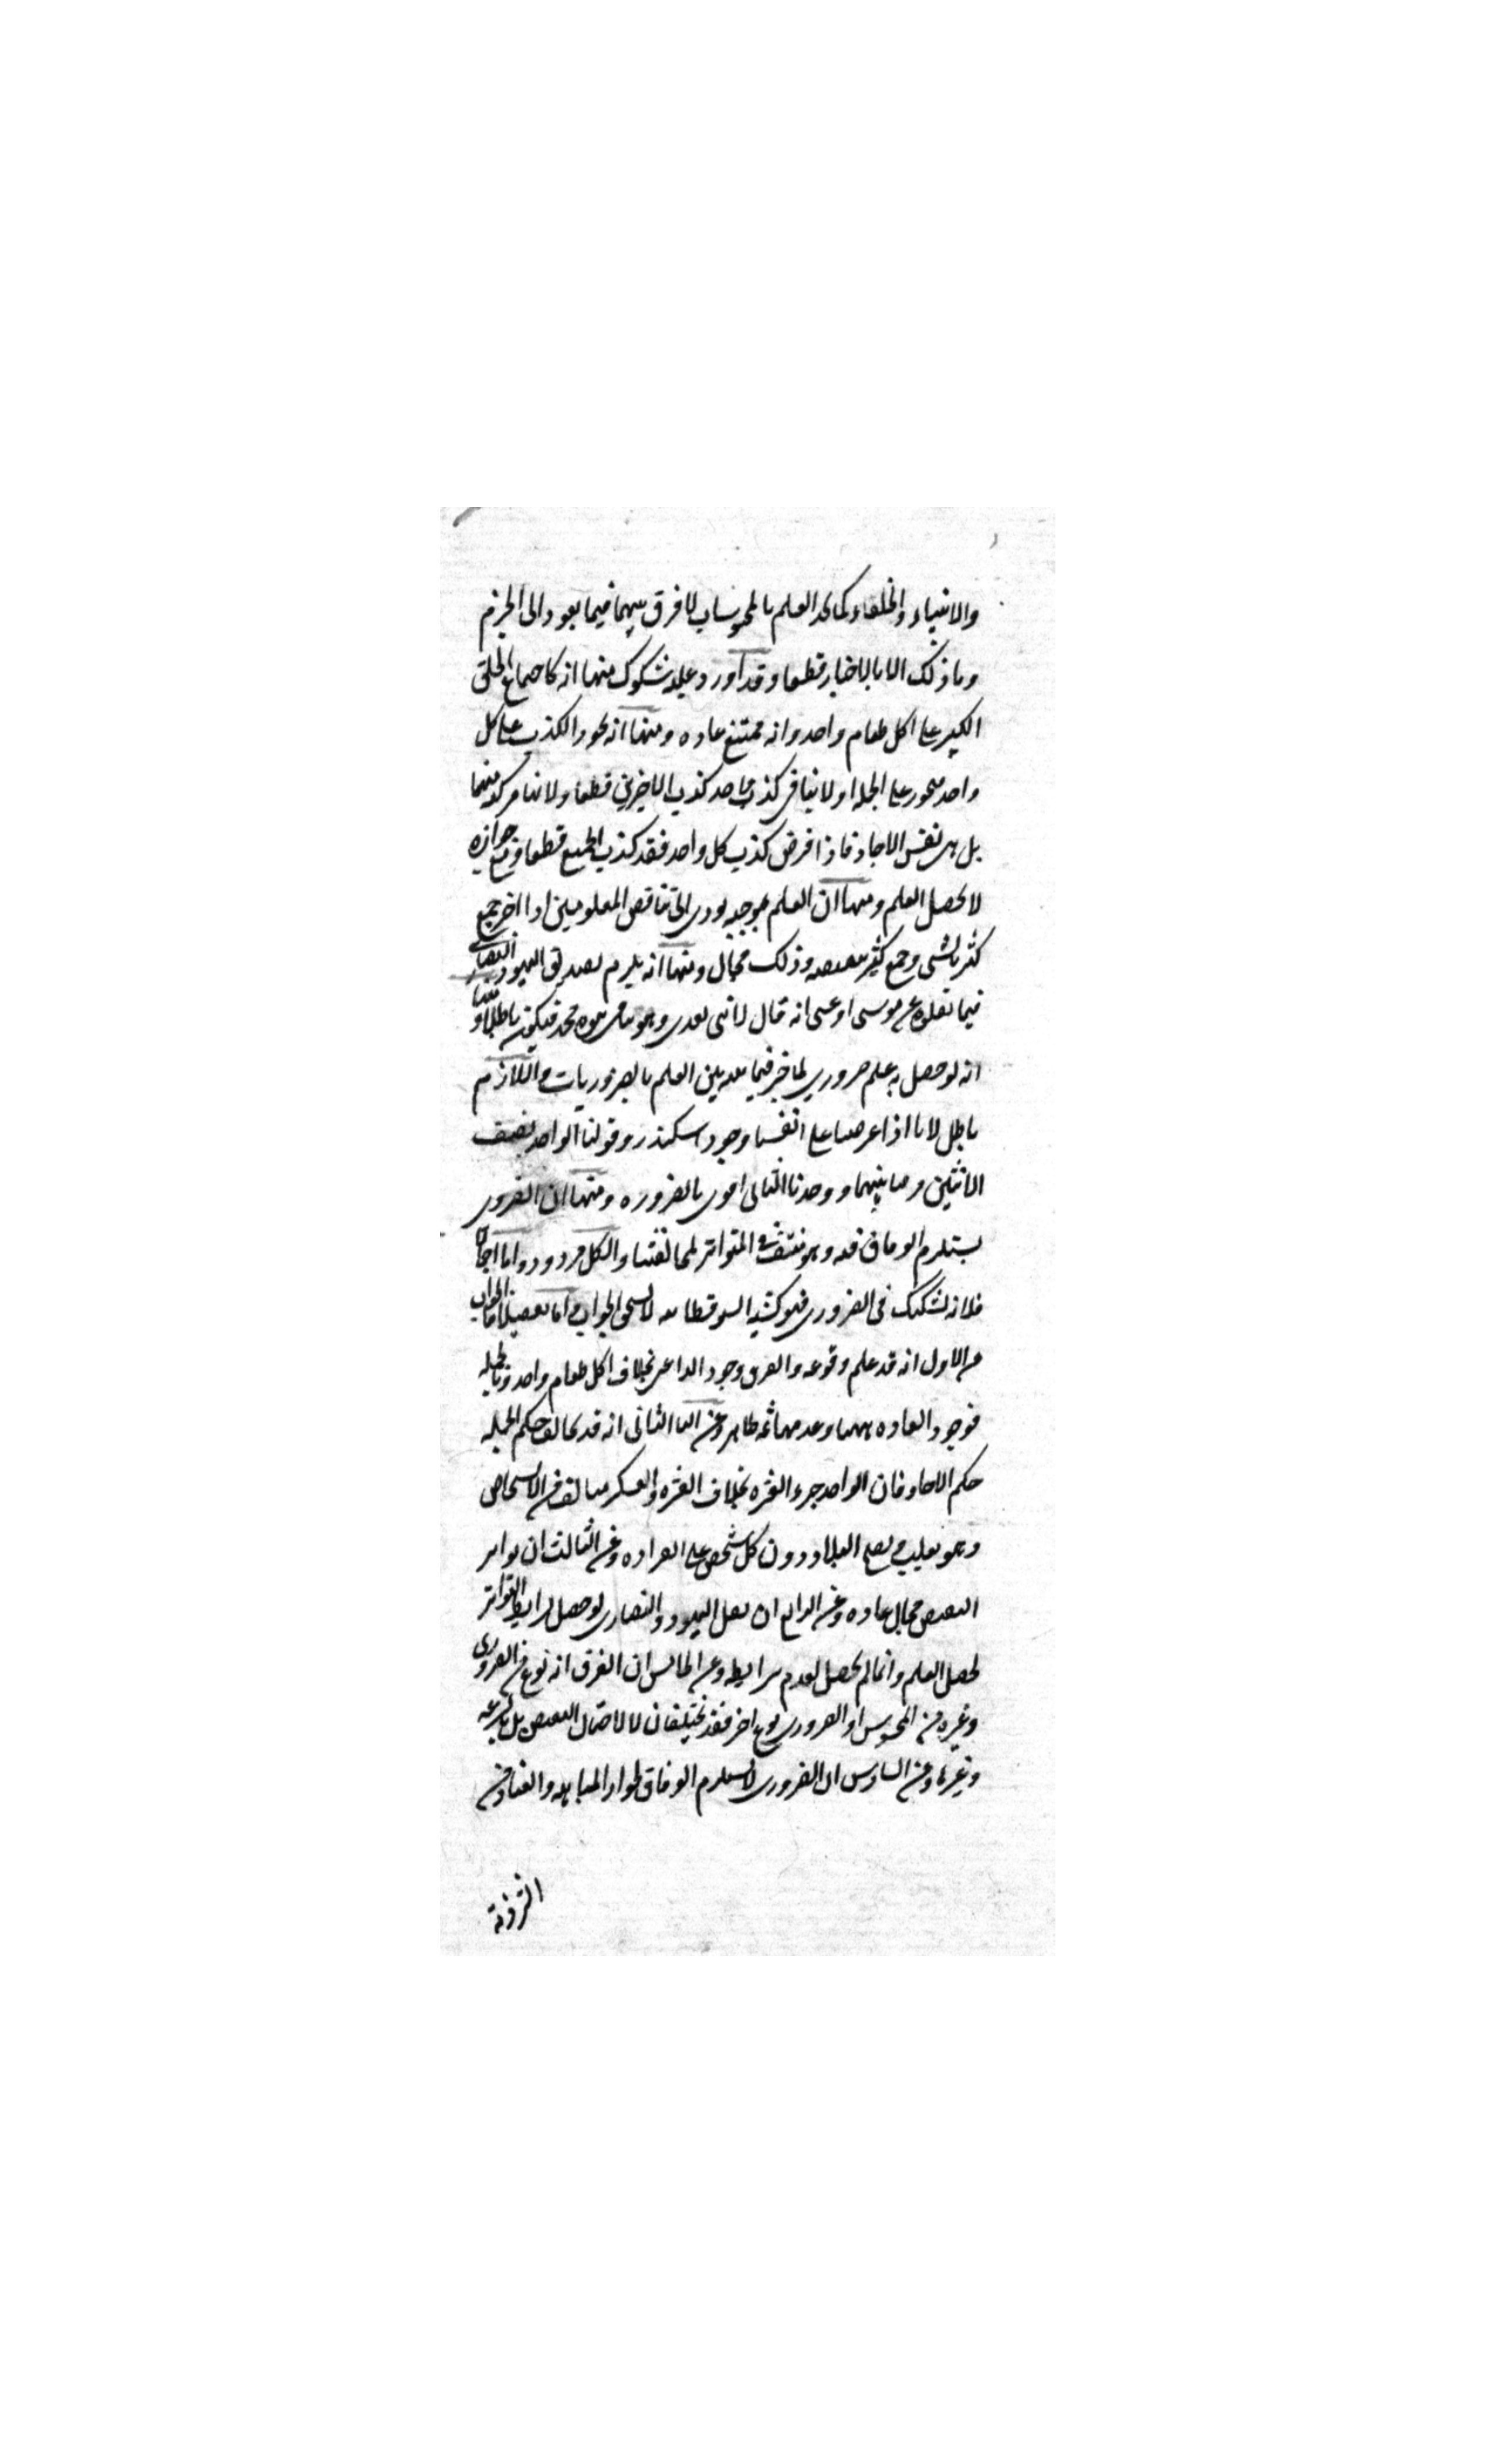 والانبياء والخلفاء كما نجد العلم بالمحوسات لا فرق بينهما فيما يعود الى الجزم
وما ذلك الا بالاخبار قطعا وقد اورد عليه شكوك منها انه كاجماع الخلق
الكثير على اكل طعام واحد وانه ممتنع عاده ومنها انه يجوز الكذب على كل
واحد فيجوز على الجمله اذ لا ينافى كذب واحد كذب الاخرين قطعا ولانها مركبه منها
بل هى نفس الاحاد فاذا فرض كذب كل واحد فقد كذب الجميع قطعا ومع جوازه
لا يحصل العلم ومنها ان العلم بموجبه يودى الى تناقض المعلومين اذا اخبر جمع
كثير بالشى وجمع كثير بنقيضه وذلك محال ومنها انه يلزم تصديق اليهود والنصارى
فيما نقلوه عن موسى او عيسى انه قال لا نبى بعدى وهو ينافى نبوه محمد فيكون باطلا ومنها
انه لو حصل به علم ضروري لما فرق فيما بينه وبين العلم بالضروريات واللازم
باطل لانا اذا عرضنا على انفسنا وجود اسكندر وقولنا الواحد نصف
الاثنين فرقنا بينهما ووجدنا الثانى اقوى بالضروره ومنها ان الضرورى
يستلزم الوفاق فيه وهو منتف فى المتواتر لمخالفتنا والكل مردود واما اجمالا
فلانه تشكيك فى الضرورى فهو كشبه السوفسطائيه لا يستحق الجواب واما تفصيلا فالجواب
عن الاول انه قد علم وقوعه والفرق وجود الداعى بخلاف اكل طعام واحد وبالجمله
فوجود العاده ههنا وعدمها ثمه ظاهر وعن الثانى انه قد يخالف حكم الجمله
حكم الاحاد فان الواحد جزء العشره بخلاف العشره والعسكر متالف من الاشخاص
وهو يغلب ويفتح البلاد دون كل شخص على انفراده وعن الثالث ان تواتر
النقيضين محال عاده وعن الرابع ان نقل اليهود والنصارى لو حصل شرايط التواتر
لحصل العلم وانما لم يحصل لعدم شرايطه وعن الخامس ان الفرق انه نوع من الضرورى
وغيره من المحسوس او الضرورى نوع اخر فقد يختلفان لا لاحتمال النقيض بل بالسرعه
وغيرها وعن السادس ان الضرورى لا يستلزم الوفاق لجواز المباهته والعناد من
الشرذمة